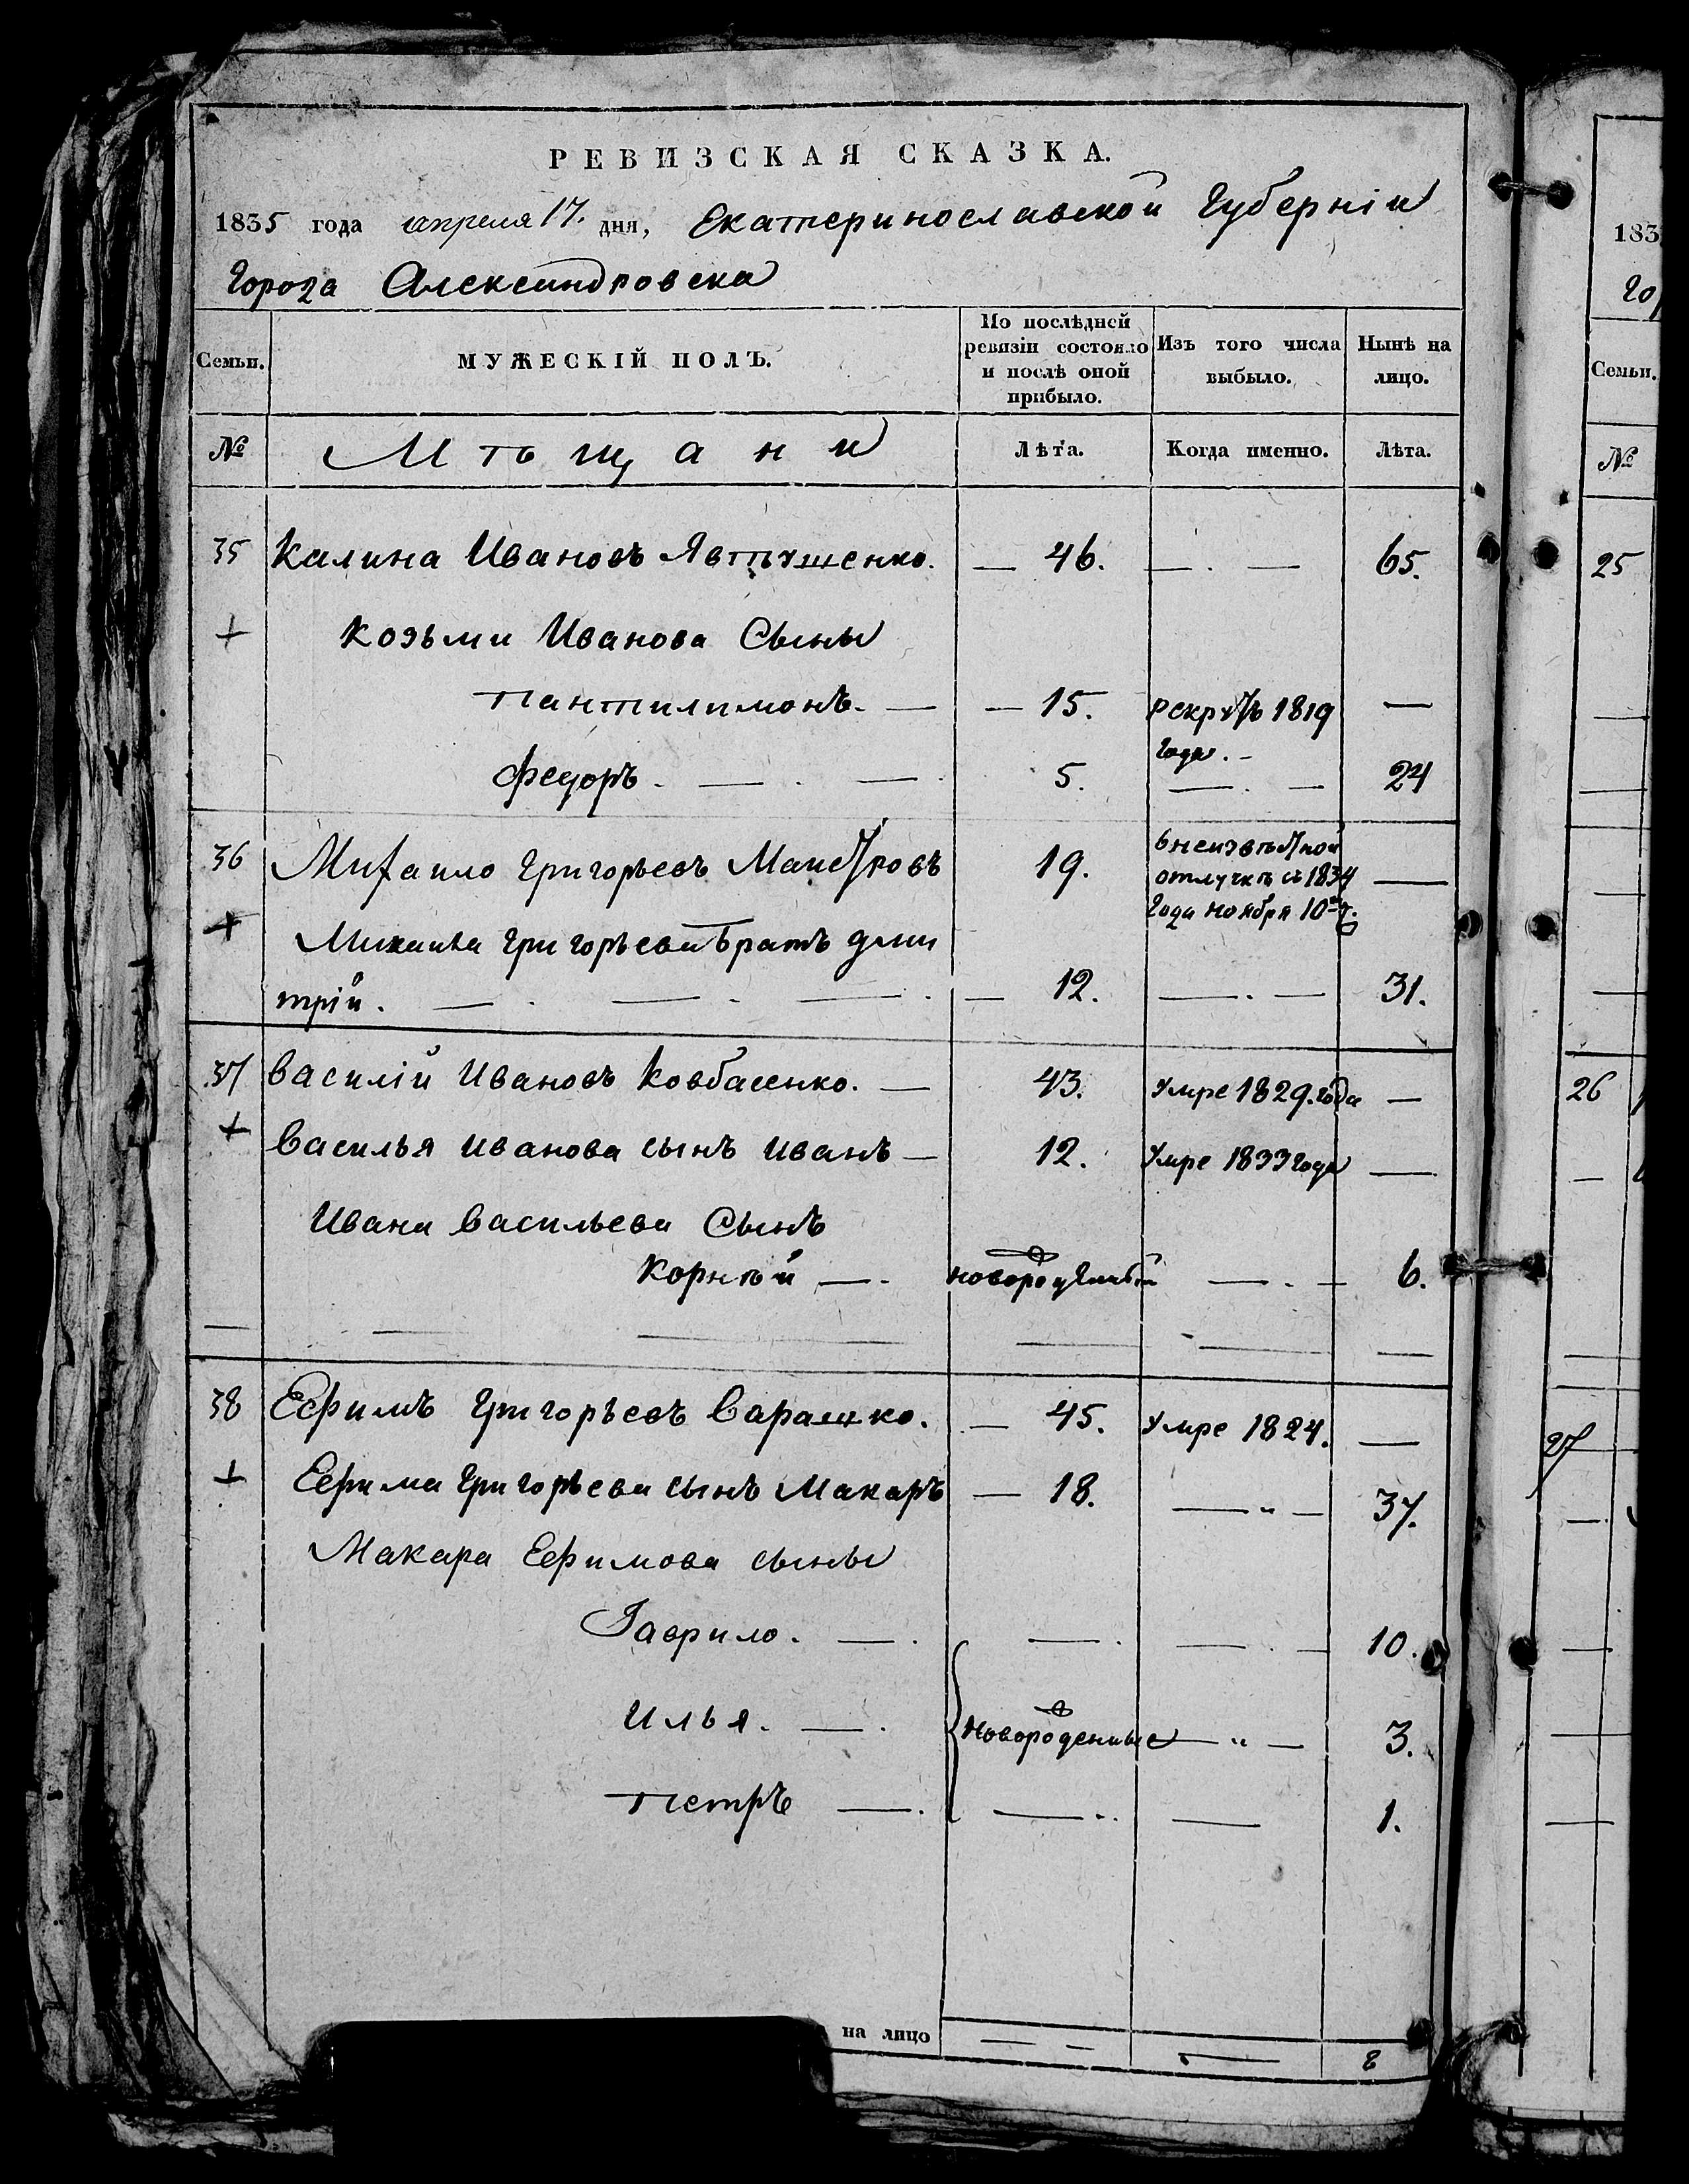 РЕВИЗСКАЯ СКАЗКА.
1835 года апреля 17. дня, Екатеринославской Губерніи
Города Александровска
Семьи.
МУЖЕСКІЙ ПОЛЪ.
По послѣдней ревизіи состояло и послѣ оной прибыло.
Изъ того числа выбыло.
Нынѣ на лицо.
№
Мѣщани
Лѣта.
Когда именно.
Лѣта.
35 Калина Ивановъ Явтушенко. — 46. — . — 65.
+ Козьми Иванова Сыны
Пантилимонъ. — — 15. рекрутъ 1819 года . — —
Федоръ . — . — . 5. — . — 24
36 Михаило Григорьевъ Маистровъ 19. в неизвѣстной отлучкѣ съ 1834 года ноября 10го ч. —
+ Михаила Григорьева братъ Дми
трій . — . — . — . — 12. — . — 31.
37 Василій Ивановъ Ковбасенко. — 43. Умре 1829. года —
+ Василья Иванова сынъ Иванъ — 12. Умре 1833 года —
Ивана Васильева Сынъ
Корнѣй — . новорожденый — . — 6.
38 Ефимъ Григорьевъ Варашко. — 45. Умре 1824. —
+ Ефима Григорьева сынъ Макаръ — 18. — " — 37.
Макара Ефимова сыны
Гаврило. — . — . — . — 10.
Илья. — . Новороденные — " — 3.
Петръ — . — .. — 1.
на лицо — — — 8
183
Го
Семьи.
№
25
26
27